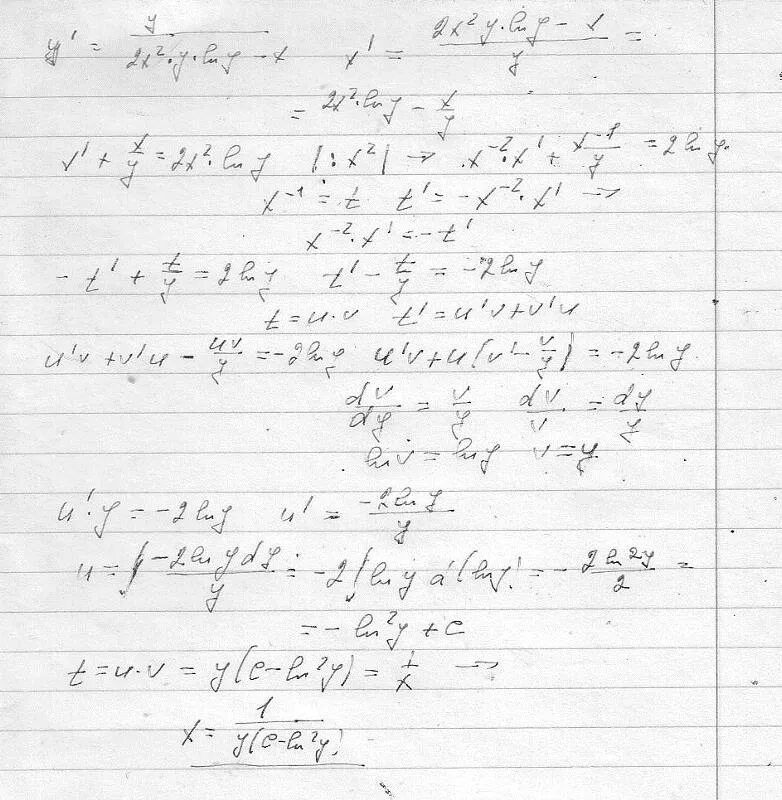 y' = y / (2x²·y·ln y − x)   x' = (2x²y·ln y − x) / y =
= 2x²·ln y − x/y
x' + x/y = 2x²·ln y   |:x²| → x⁻²·x' + x⁻¹/y = 2 ln y.
x⁻¹ = t   t' = −x⁻²·x' →
x⁻²·x' = −t'
−t' + t/y = 2 ln y   t' − t/y = −2 ln y
t = u·v   t' = u'v + v'u
u'v + v'u − uv/y = −2 ln y   u'v + u(v' − v/y) = −2 ln y
dv/dy = v/y   dv/v = dy/y
ln v = ln y   v = y
u'·y = −2 ln y   u' = −2 ln y / y
u = ∫ −2 ln y dy / y = −2∫ ln y d(ln y) = − 2 ln²y / 2 =
= − ln²y + c
t = u·v = y(c − ln²y) = 1/x →
x = 1 / y(c − ln²y)